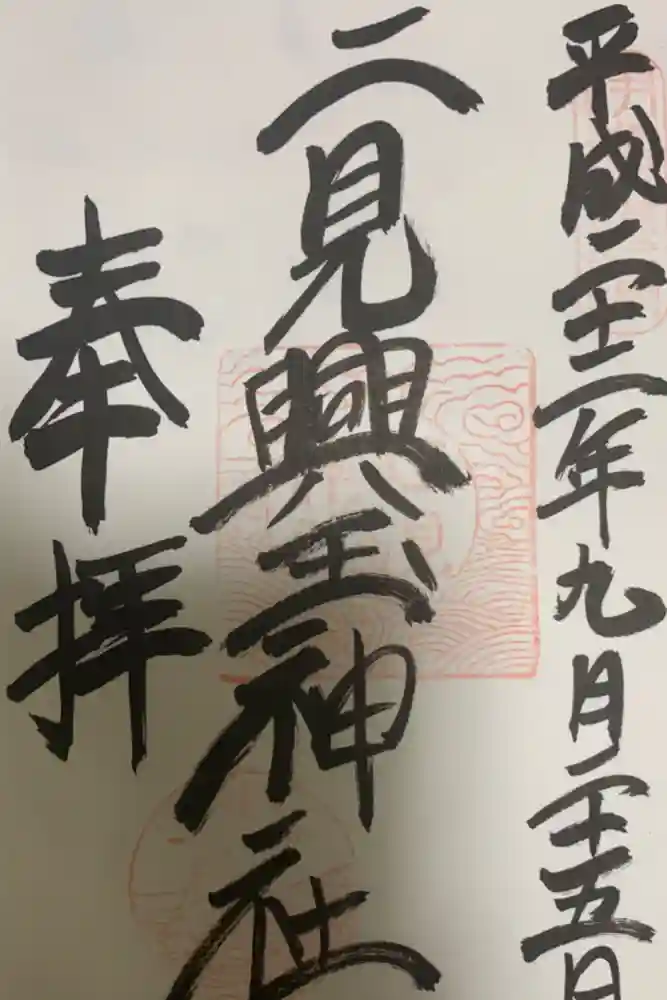 平成二十二年九月二十五日
二見興玉神社
奉拝